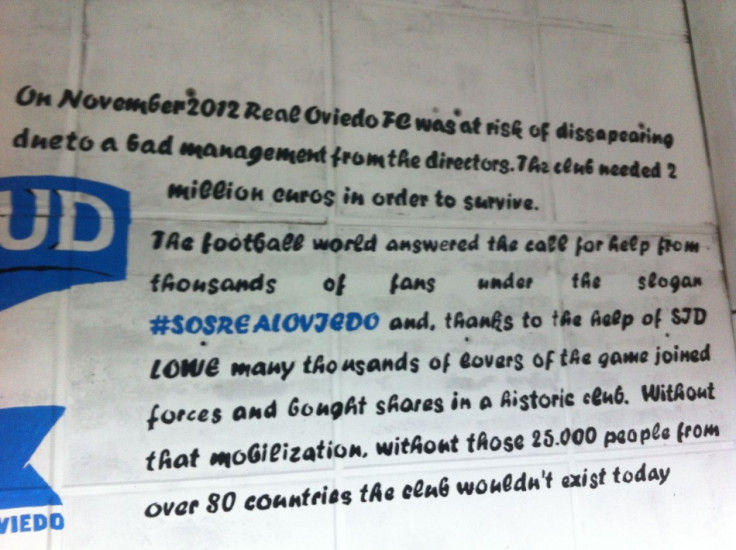 On November 2012 Real Oviedo FC was at risk of dissapearing
due to a bad management from the directors. The club needed 2
million euros in order to survive.
UD
The football world answered the call for help from
thousands of fans under the slogan
#SOSREALOVIEDO and, thanks to the help of SID
LOWE many thousands of lovers of the game joined
forces and bought shares in a historic club. Without
that mobilization, without those 25.000 people from
over 80 countries the club wouldn't exist today
VIEDO